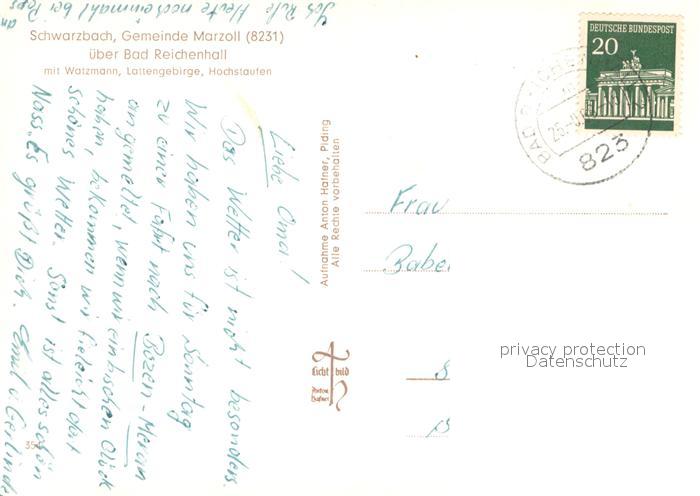 Schwarzbach, Gemeinde Marzoll (8231)
über Bad Reichenhall
mit Watzmann, Lattengebirge, Hochstaufen
Liebe Oma!
Das Wetter ist nicht besonders.
Wir haben uns für Sonntag
zu einer Fahrt nach Bozen-Meran
angemeldet, wenn wir ein bischen Glück
haben, bekommen wir fieleicht dort
schönes Wetter. Sonst ist alles schön
Nass. Es grüßt Dich. Emil u. Gerlinde
Heute noch einmahl bei
Aufnahme Anton Hafner, Piding
Alle Rechte vorbehalten
Licht bild
Anton
Hafner
35
DEUTSCHE BUNDESPOST
20
BAD
823
Frau
Babe
S
privacy protection
Datenschutz